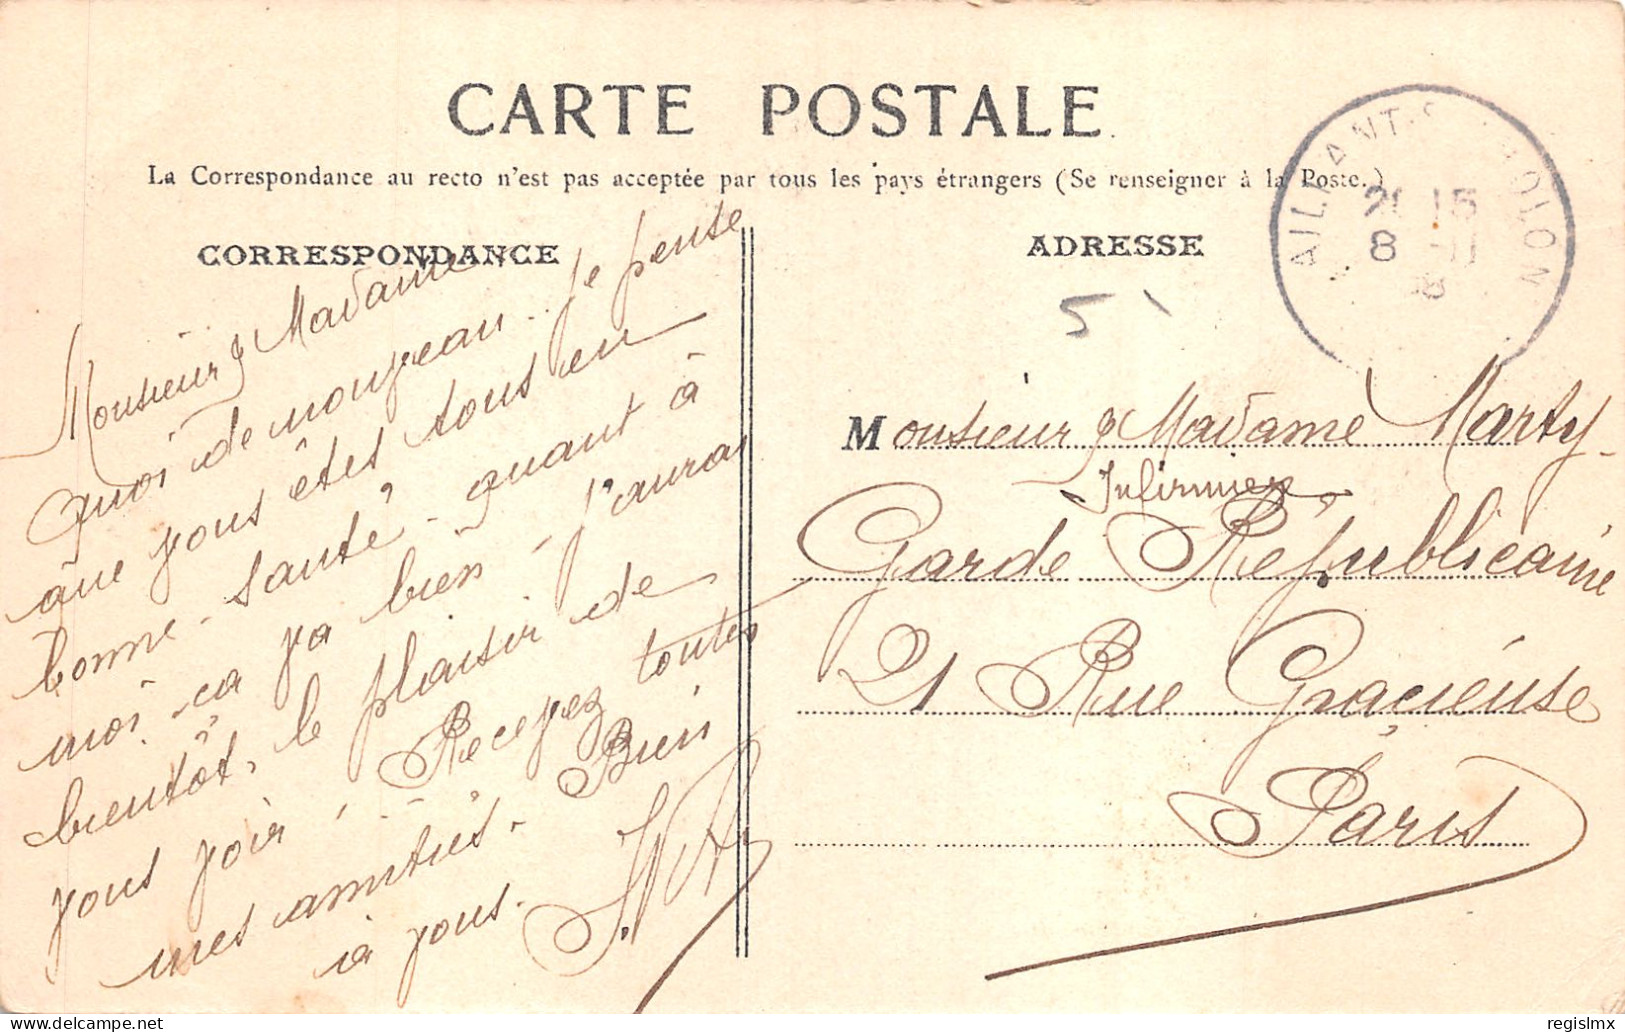 CARTE POSTALE
La Correspondance au recto n'est pas acceptée par tous les pays étrangers (Se renseigner à la Poste.)
CORRESPONDANCE
Monsieur & Madame
Quoi de nouveau. Je pense
que vous êtes tous en
bonne santé - quant à
moi ça va bien j'aurai
bientôt le plaisir de
vous voir Recevez toutes
mes amitiés. Bien
à vous.
ADRESSE
5
Monsieur & Madame Marty
Infirmier
Garde Républicaine
21 Rue Gracieuse
Paris
AILLANT-S- THOLON
20 15
8 -11
08
delcampe.net
regislmx